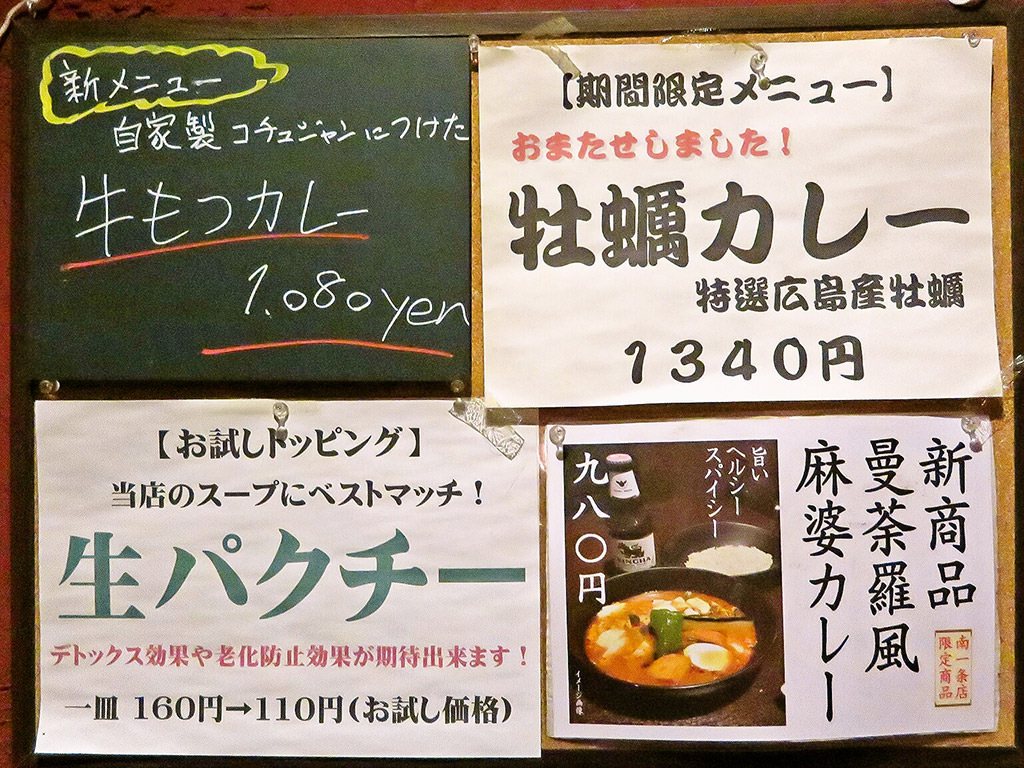 新メニュー
自家製コチュジャンにつけた
牛もつカレー
1.080yen
【期間限定メニュー】
おまたせしました！
牡蠣カレー
特選広島産牡蠣
1340円
【お試しトッピング】
当店のスープにベストマッチ！
生パクチー
デトックス効果や老化防止効果が期待出来ます！
一皿 160円→110円(お試し価格)
新商品
曼荼羅風
麻婆カレー
南一条店
限定商品
旨い
ヘルシー
スパイシー
九八〇円
SINGHA
イメージ画像